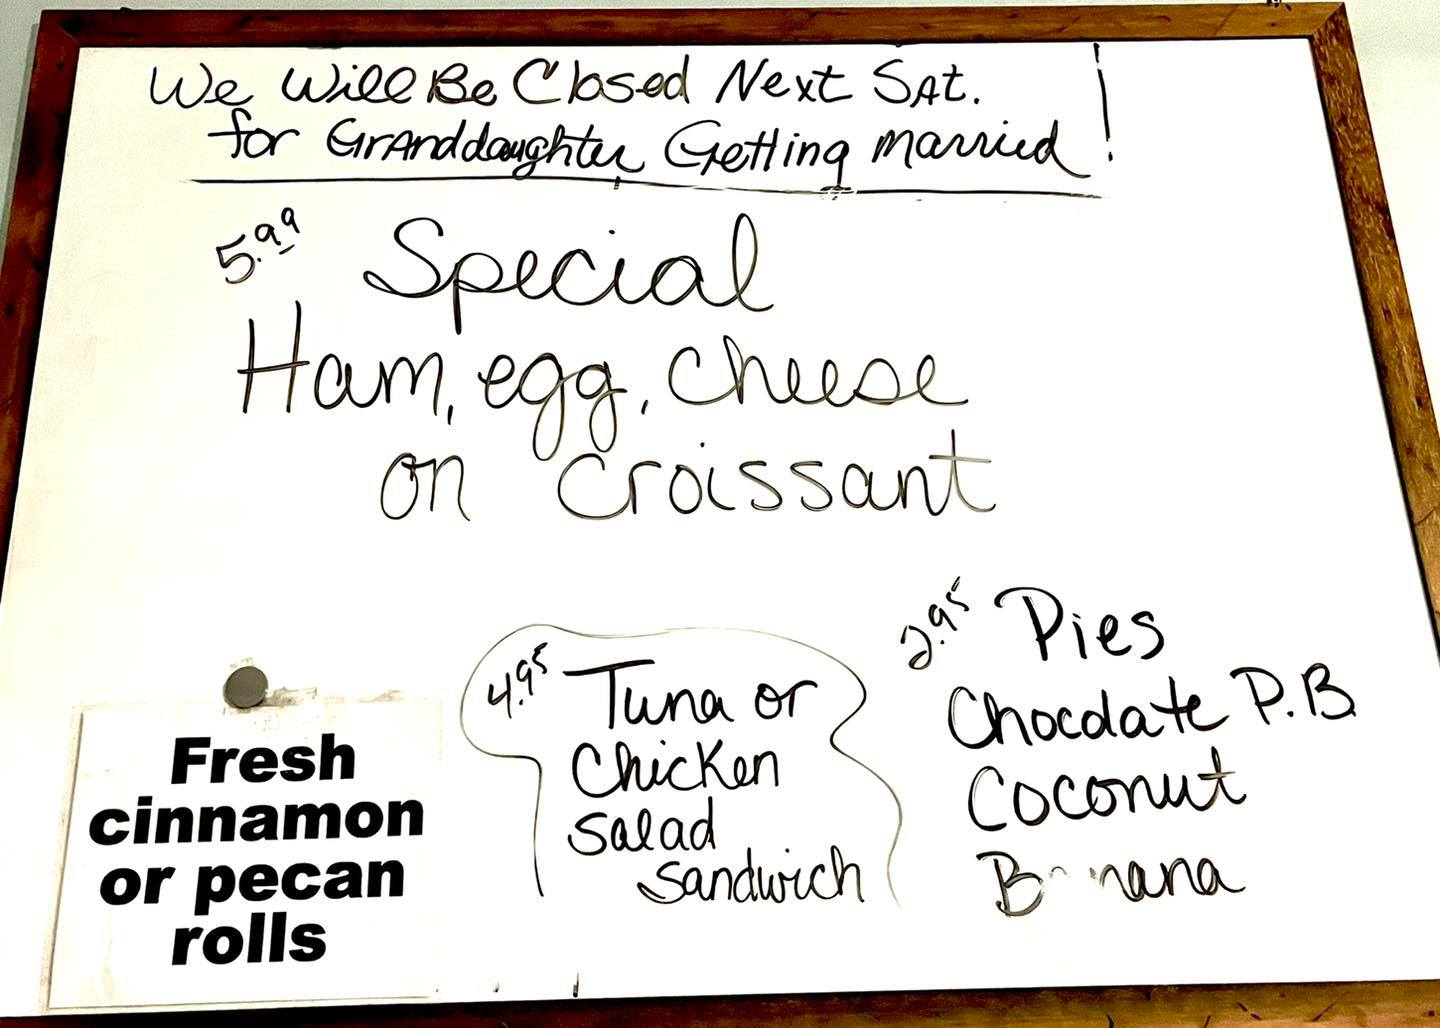 We Will Be Closed Next Sat.
for Granddaughter Getting Married!
5.99 Special
Ham, egg, cheese
on croissant
4.95 Tuna or
Chicken
Salad
Sandwich
2.95 Pies
Chocolate P.B.
Coconut
Banana
Fresh
cinnamon
or pecan
rolls